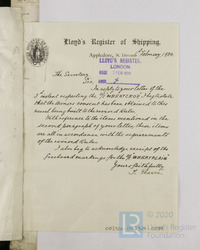 Lloyd's Register of Shipping,
Appledore, N. Devon
February 1920.
LLOYD'S REGISTER,
LONDON
FEB 1920
The Secretary
Sir,
In reply to your letter of the
instant respecting the S/S "WHEATCROP" I beg to state
that the owners consent has been obtained to this
vessel being built to the revised Rules.
With reference to the items mentioned on the
second paragraph of your letter, these items
are all in accordance with the requirements
of the revised Rules.
I also beg to acknowledge receipt of the
freeboard markings for the S/S
Yours faithfully
© 2020
Lloyd's Register
Foundation